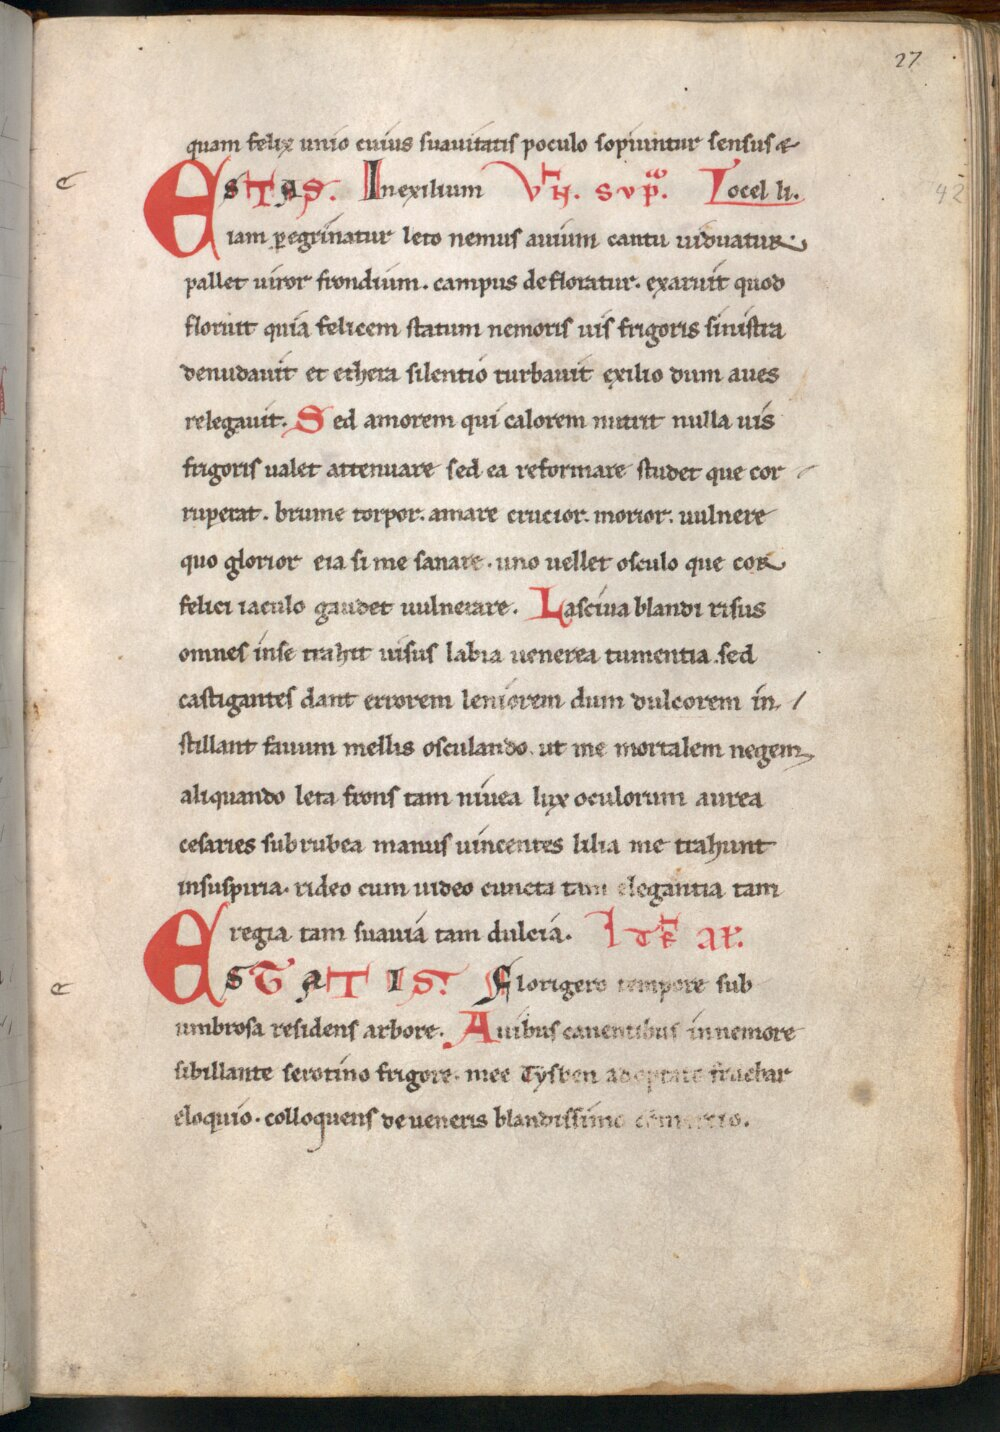 27
quam felix unio cuius suauitatis poculo sopiuntur sensus &
ESTAS. In exilium Vñ. sup. Locelli.
42
iam peregrinatur leto nemus auium cantu uiduatur.
pallet uiror frondium. campus defloratur. exaruit quod
floruit quia felicem statum nemoris uis frigoris sinistra
denudauit et ethera silentio turbauit exilio dum aues
relegauit. Sed amorem qui calorem nutrit nulla uis
frigoris ualet attenuare sed ea reformare studet que cor
ruperat. brume torpor. amare crucior. morior. uulnere
quo glorior eia si me sanare. uno uellet osculo que cor
felici iaculo gaudet uulnerare. Lasciua blandi risus
omnes inse trahit uisus labia uenerea tumentia. sed
castigantes dant errorem leniorem dum dulcorem in
stillant fauum mellis osculando. ut me mortalem negem
aliquando leta frons tam niuea lux oculorum aurea
cesaries subrubea manus uincentes lilia me trahunt
insuspiria. rideo cum uideo cuncta tam elegantia tam
regia tam suauia tam dulcia. Itē
ESTATIS. Florigero tempore sub
umbrosa residens arbore. Auibus canentibus innemore
sibillante serotino frigore. mee Tysben adoptate fruebar
eloquio. colloquens de ueneris blandissimo